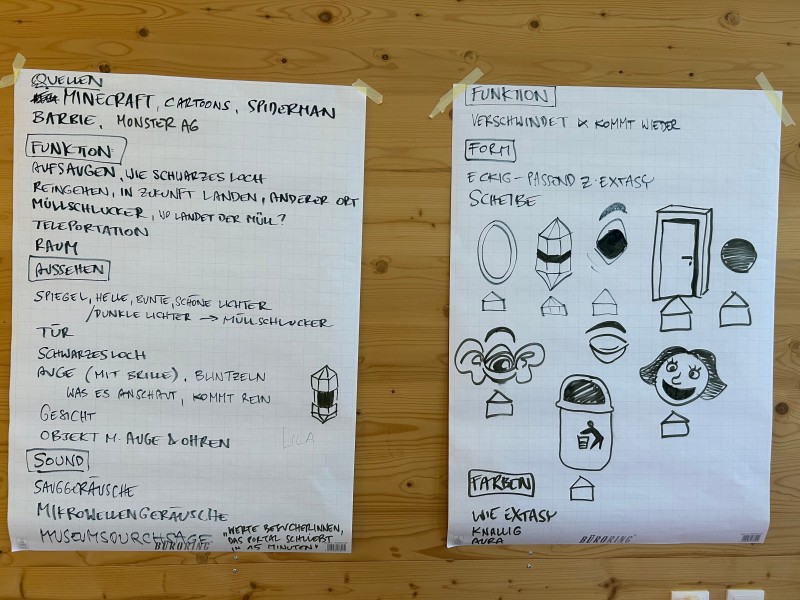 QUELLEN
MINECRAFT, CARTOONS, SPIDERMAN
BARBIE, MONSTER AG
FUNKTION
AUFSAUGEN, WIE SCHWARZES LOCH
REINGEHEN, IN ZUKUNFT LANDEN, ANDERER ORT
MÜLLSCHLUCKER, WO LANDET DER MÜLL?
TELEPORTATION
RAUM
AUSSEHEN
SPIEGEL, HELLE, BUNTE, SCHÖNE LICHTER
/DUNKLE LICHTER → MÜLLSCHLUCKER
TÜR
SCHWARZES LOCH
AUGE (MIT BRILLE), BLINTZELN
WAS ES ANSCHAUT, KOMMT REIN
GESICHT
OBJEKT M. AUGE & OHREN
LILA
SOUND
SAUGGERÄUSCHE
MIKROWELLENGERÄUSCHE
MUSEUMSDURCHSAGE „WERTE BESUCHERINNEN,
DAS PORTAL SCHLIEßT
IN 15 MINUTEN"
BÜRORING
FUNKTION
VERSCHWINDET & KOMMT WIEDER
FORM
ECKIG - PASSEND Z. EXTASY
SCHEIBE
FARBEN
WIE EXTASY
KNALLIG
AURA
BÜRORING